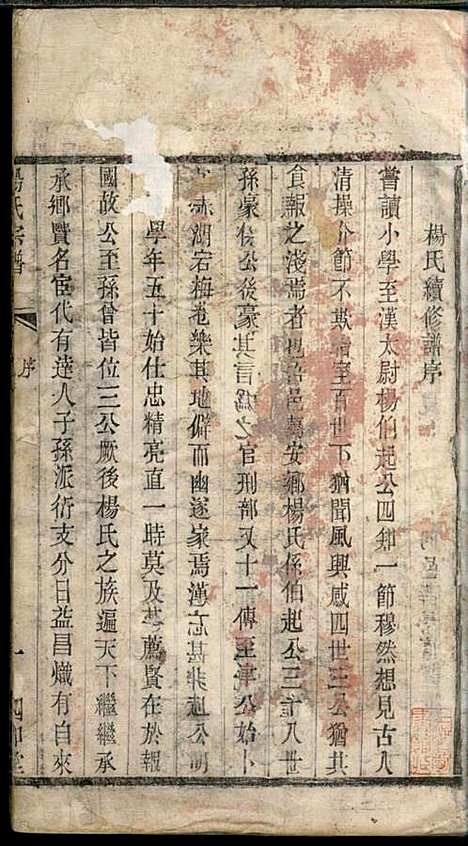 楊氏續修譜序
嘗讀小學至漢太尉楊伯起公四知一節穆然想見古人
清操介節不欺暗室百世下猶聞風興感四世三公猶其
食報之淺焉者也吾邑藕安鄉楊氏係伯起公三十八世
孫豪侯公後豪其言為之官刑部又十一傳至津公始卜
赤湖宕梅巷樂其地僻而幽遂家焉漢志甚伯起公明
學年五十始仕忠精亮直一時莫及甚薦賢在於報
國故公至孫曾皆位三公厥後楊氏之族遍天下繼繼承
承鄉賢名宦代有達人子孫派衍支分日益昌熾有自來
楊氏宗譜
序
一
四知堂